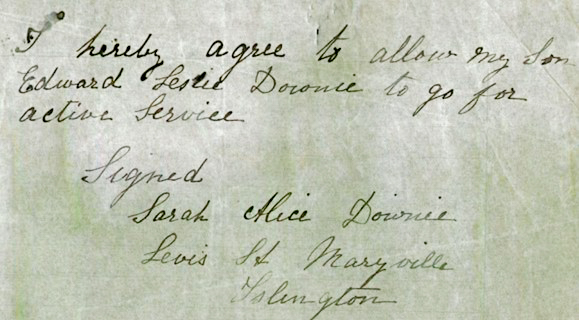 I hereby agree to allow my Son
Edward Leslie Downie to go for
active Service
Signed
Sarah Alice Downie
Levis St Maryville
Islington